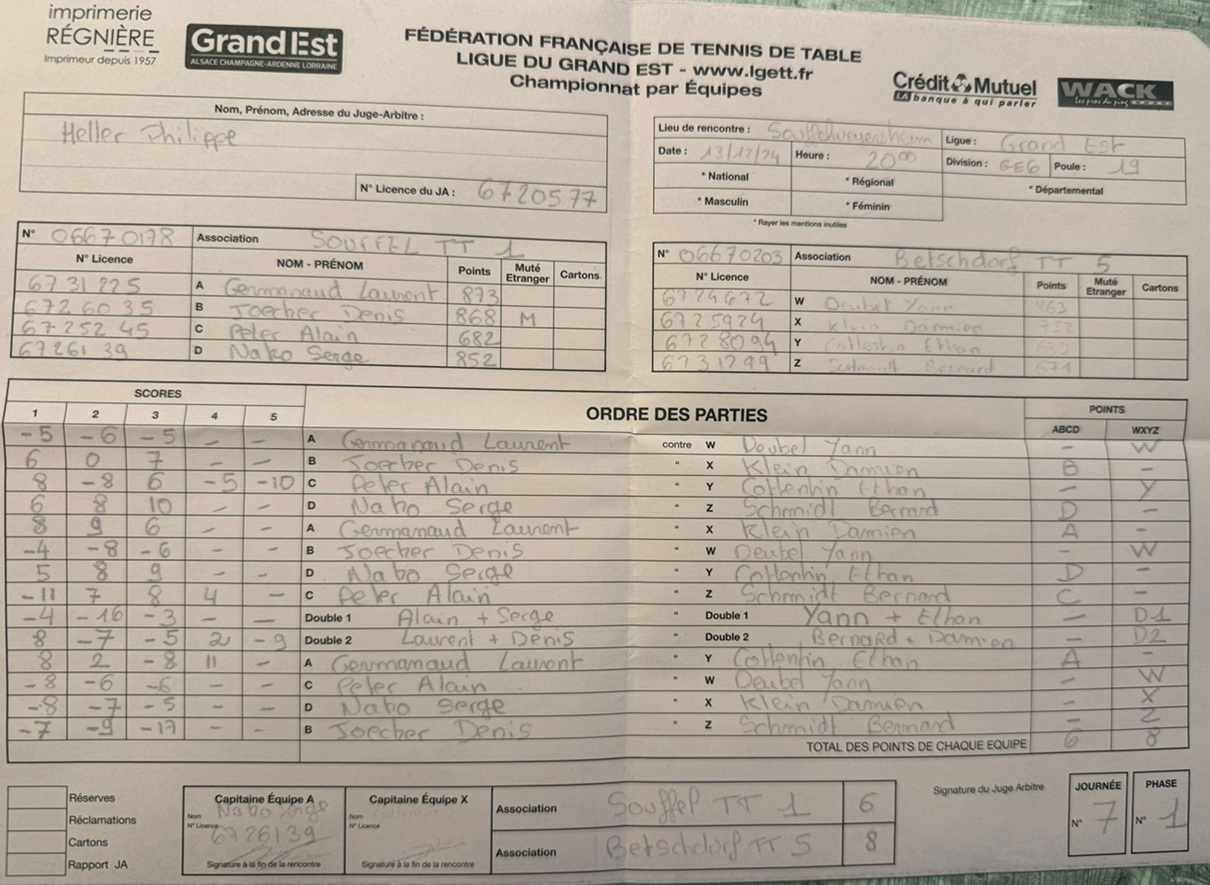 imprimerie
RÉGNIÈRE
Imprimeur depuis 1957
Grand Est
ALSACE CHAMPAGNE-ARDENNE LORRAINE
FÉDÉRATION FRANÇAISE DE TENNIS DE TABLE
LIGUE DU GRAND EST - www.lgett.fr
Championnat par Équipes
Crédit Mutuel
LA banque à qui parler
WACK
Nom, Prénom, Adresse du Juge-Arbitre :
Heller Philippe
N° Licence du JA : 6720577
Lieu de rencontre : Souffelweyersheim Ligue : Grand Est
Date : 13/12/24 Heure : 20⁰⁰ Division : GE6 Poule : 19
* National * Régional * Départemental
* Masculin * Féminin
* Rayer les mentions inutiles
N° 06670178 Association SOUFFEL TT 1
N° Licence NOM - PRÉNOM Points Muté Etranger Cartons
6731225 A Germanaud Laurent 873
6726035 B Joecher Denis 868 M
6725245 C Peter Alain 682
6726139 D Nabo Serge 852
N° 06670203 Association Betschdorf TT 5
N° Licence NOM - PRÉNOM Points Muté Etranger Cartons
6724672 W Deubel Yann 863
6725924 X Klein Damien 732
6728094 Y Cottenhin Ethan
6731299 Z Schmidt Bernard 671
SCORES
1 2 3 4 5 ORDRE DES PARTIES POINTS
ABCD WXYZ
-5 -6 -5 - - A Germanaud Laurent contre W Deubel Yann - W
6 0 7 - - B Joecher Denis " X Klein Damien B -
8 -8 6 -5 -10 C Peter Alain " Y Cottenhin Ethan - Y
6 8 10 - - D Nabo Serge " Z Schmidt Bernard D -
8 9 6 - - A Germanaud Laurent " X Klein Damien A -
-4 -8 -6 - - B Joecher Denis " W Deubel Yann - W
5 8 9 - - D Nabo Serge " Y Cottenhin Ethan D -
-11 7 8 4 - C Peter Alain " Z Schmidt Bernard C -
-4 -16 -3 - - Double 1 Alain + Serge " Double 1 Yann + Ethan - D1
8 -7 -5 2 -9 Double 2 Laurent + Denis " Double 2 Bernard + Damien - D2
8 2 -8 11 - A Germanaud Laurent " Y Cottenhin Ethan A -
-8 -6 -6 - - C Peter Alain " W Deubel Yann - W
-8 -7 -5 - - D Nabo Serge " X Klein Damien - X
-7 -9 -17 - - B Joecher Denis " Z Schmidt Bernard - Z
TOTAL DES POINTS DE CHAQUE EQUIPE 6 8
Réserves
Réclamations
Cartons
Rapport JA
Capitaine Équipe A
Nom Nabo Serge
N° Licence 6726139
Signature à la fin de la rencontre
Capitaine Équipe X
Nom
N° Licence
Signature à la fin de la rencontre
Association Souffel TT 1 6
Association Betschdorf TT 5 8
Signature du Juge Arbitre
JOURNÉE
N° 7
PHASE
N° 1